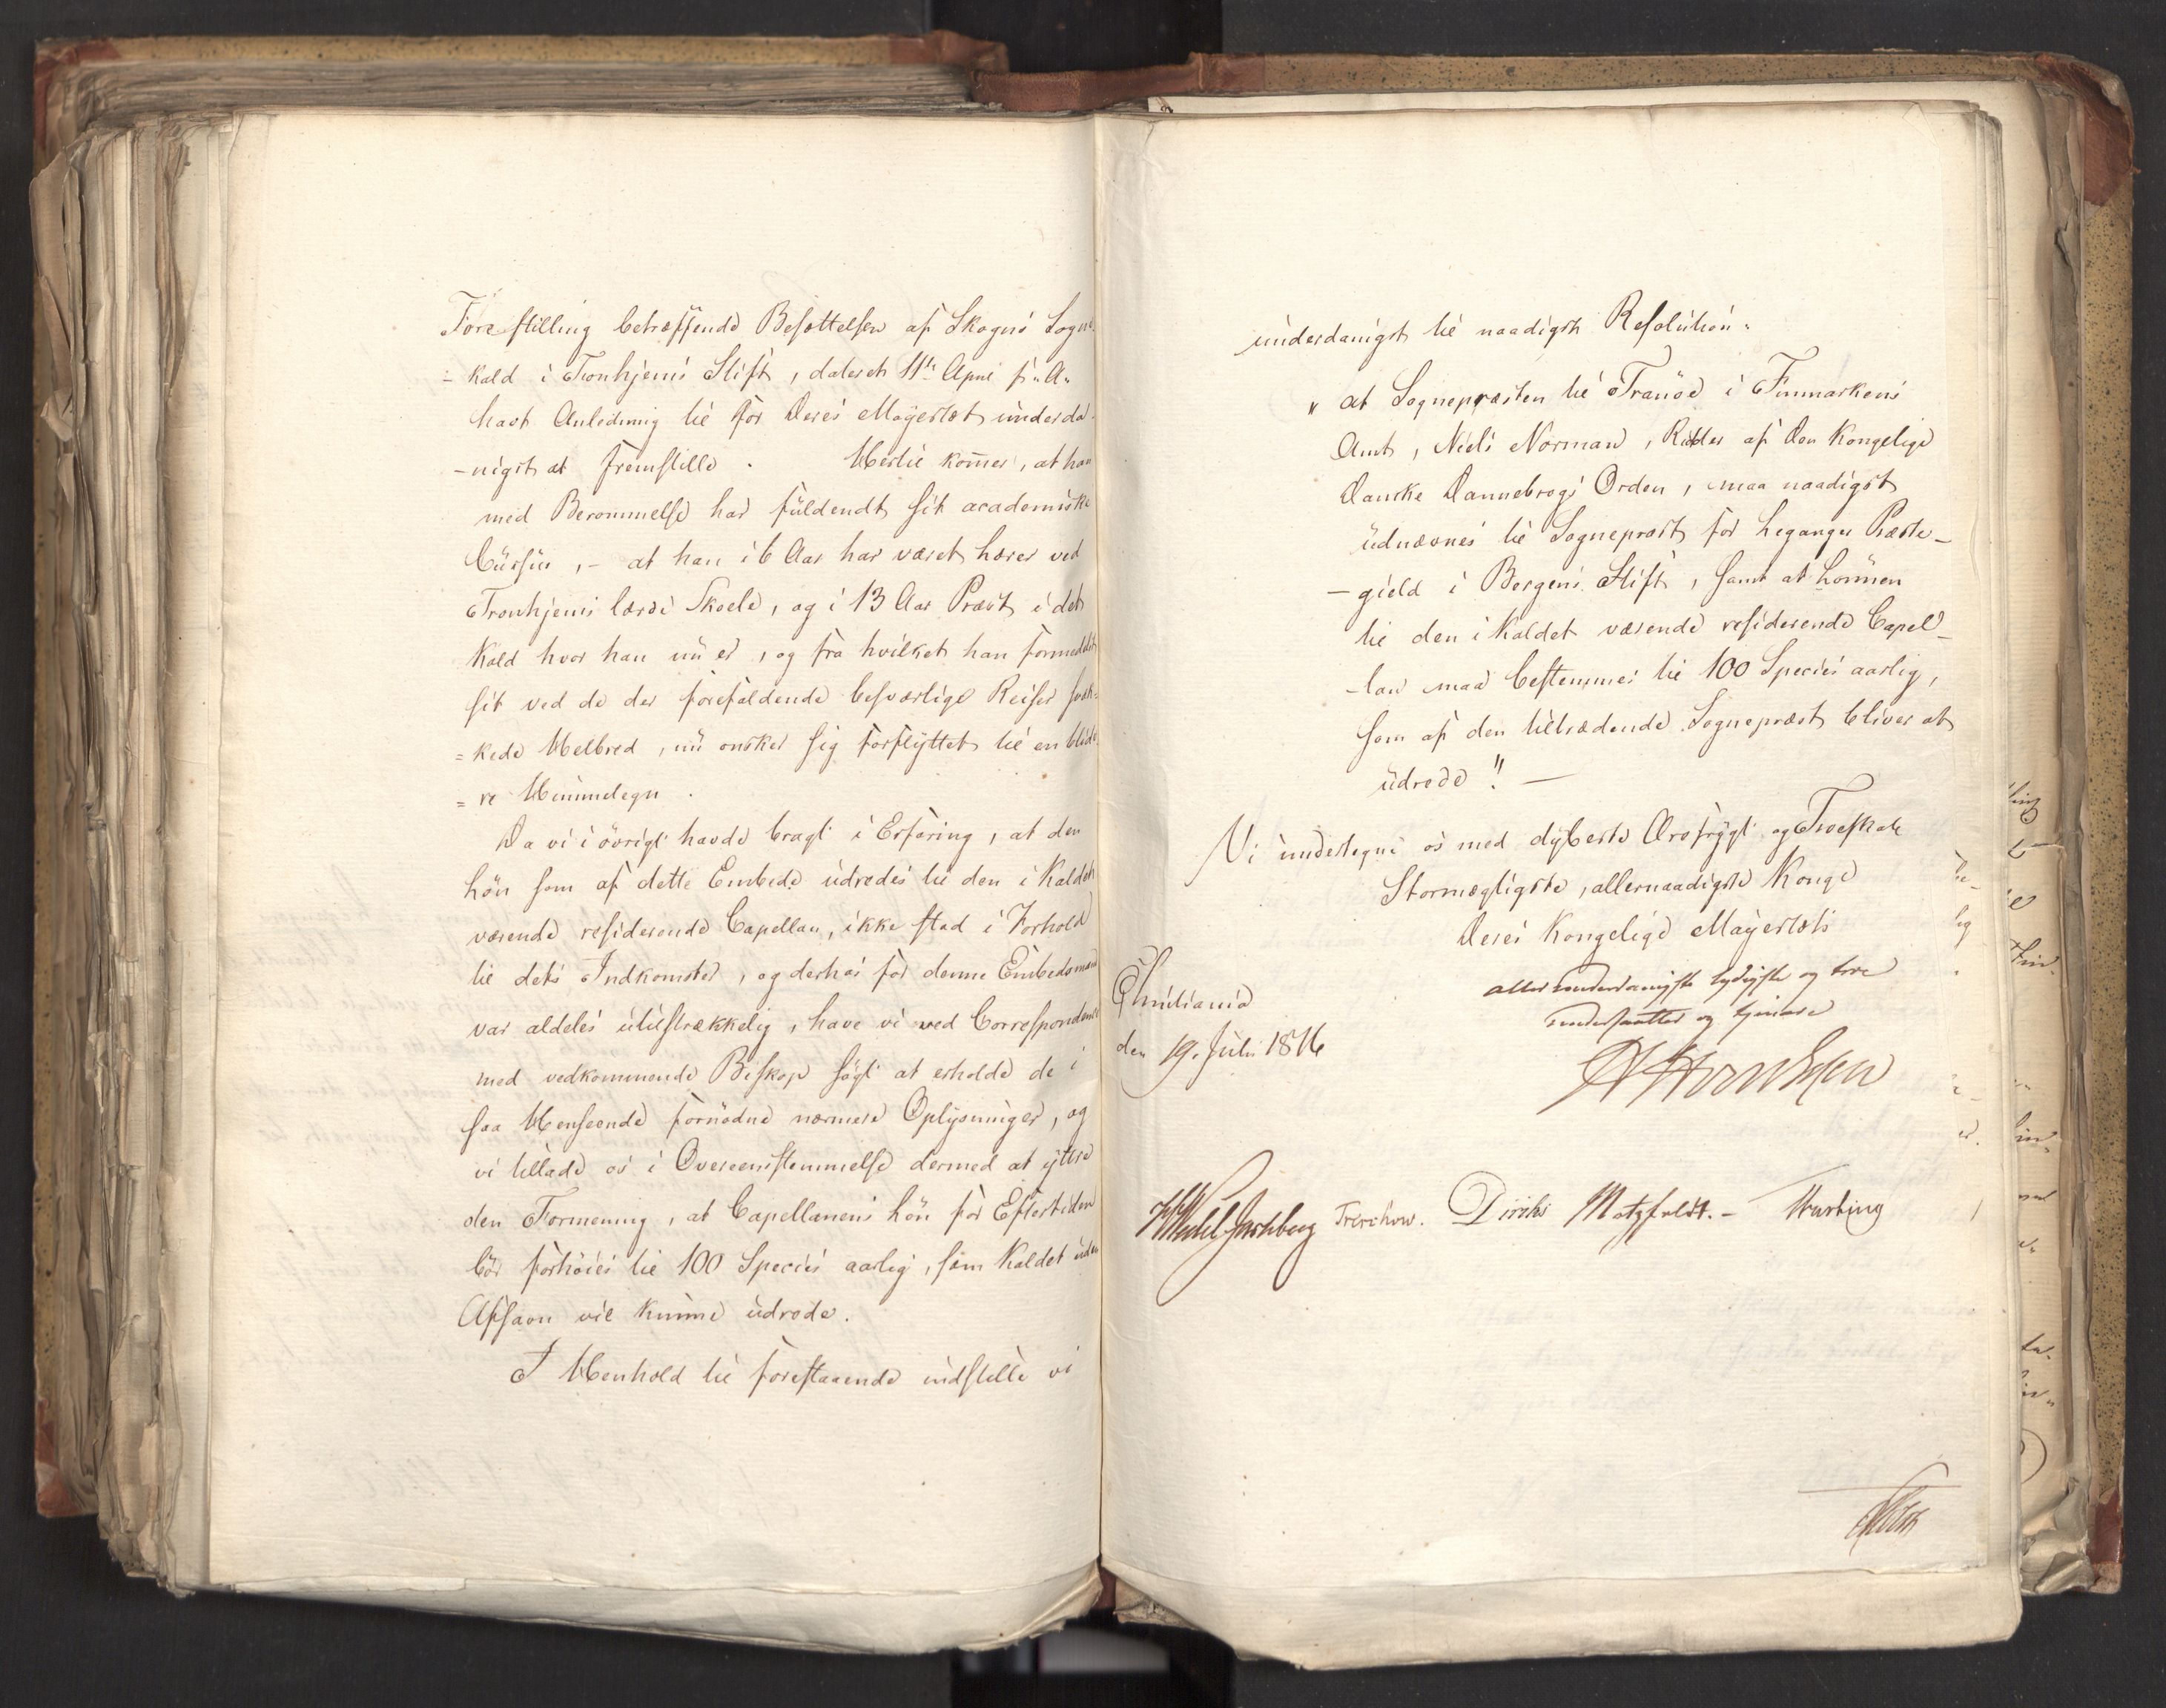 Forestilling betræffende Besættelsen af Skogns Sogne-
- kald i Tronhjems Stift, dateret 11te April f. A.
havt Anledning til for Deres Mayestæt underda-
- nigst at fremstille. Hertil kom̄er, at han
med Berømmelse har fuldendt sit academiske
Cursus, - at han i 6 Aar har været Hører ved
Tronhjems lærde Skole, og i 13 Aar Præst i det
Kald hvor han nu er, og fra hvilket han formedelst
sit ved de der forefaldende besværlige Reiser svæk=
= kede Helbred, nu ønsker sig forflyttet til en blide
= re Himmelegn.
Da vi i øvrigt havde bragt i Erfaring, at den
Løn som af dette Embede udredes til den i Kaldet
værende residerende Capellan, ikke stod i Forhold
til dets Indkomster, og derhos for denne Embedsmand
var aldeles utilstrækkelig, have vi ved Correspondence
med vedkommende Biskop søgt at erholde de i
saa Henseende fornødne nærmere Oplysninger, og
vi tillade os i Overeensstemmelse dermed at yttre
den Formening, at Capellanens Løn for Eftertiden
bør forhøies til 100 Species aarlig, som Kaldet uden
Afsavn vil kunne udrede.
I Henhold til forestaaende indstille vi
underdanigst til naadigst Resolution:
" at Sognepræsten til Tranøe i Finmarkens
Amt, Niels Norman, Ridder af den Kongelige
Danske Dannebrogs Orden, maa naadigst
udnævnes til Sognepræst for Leganger Præste-
- gield i Bergens Stift, samt at Lønnen
til den i Kaldet værende residerende Capel-
- lan maa bestemmes til 100 Species aarlig,
som af den tiltrædende Sognepræst bliver at
udrede". -
Vi undertegne os med dybeste Ærefrygt og Troeskab
Stormægtigste, allernaadigste Konge
Deres Kongelige Mayestæts
allerunderdanigste lydigste og troe
undersaatter og tjenere
Christiania
den 19. Juli 1816
HWedel Jarlsberg Treschow. Diriks Motzfeldt. -